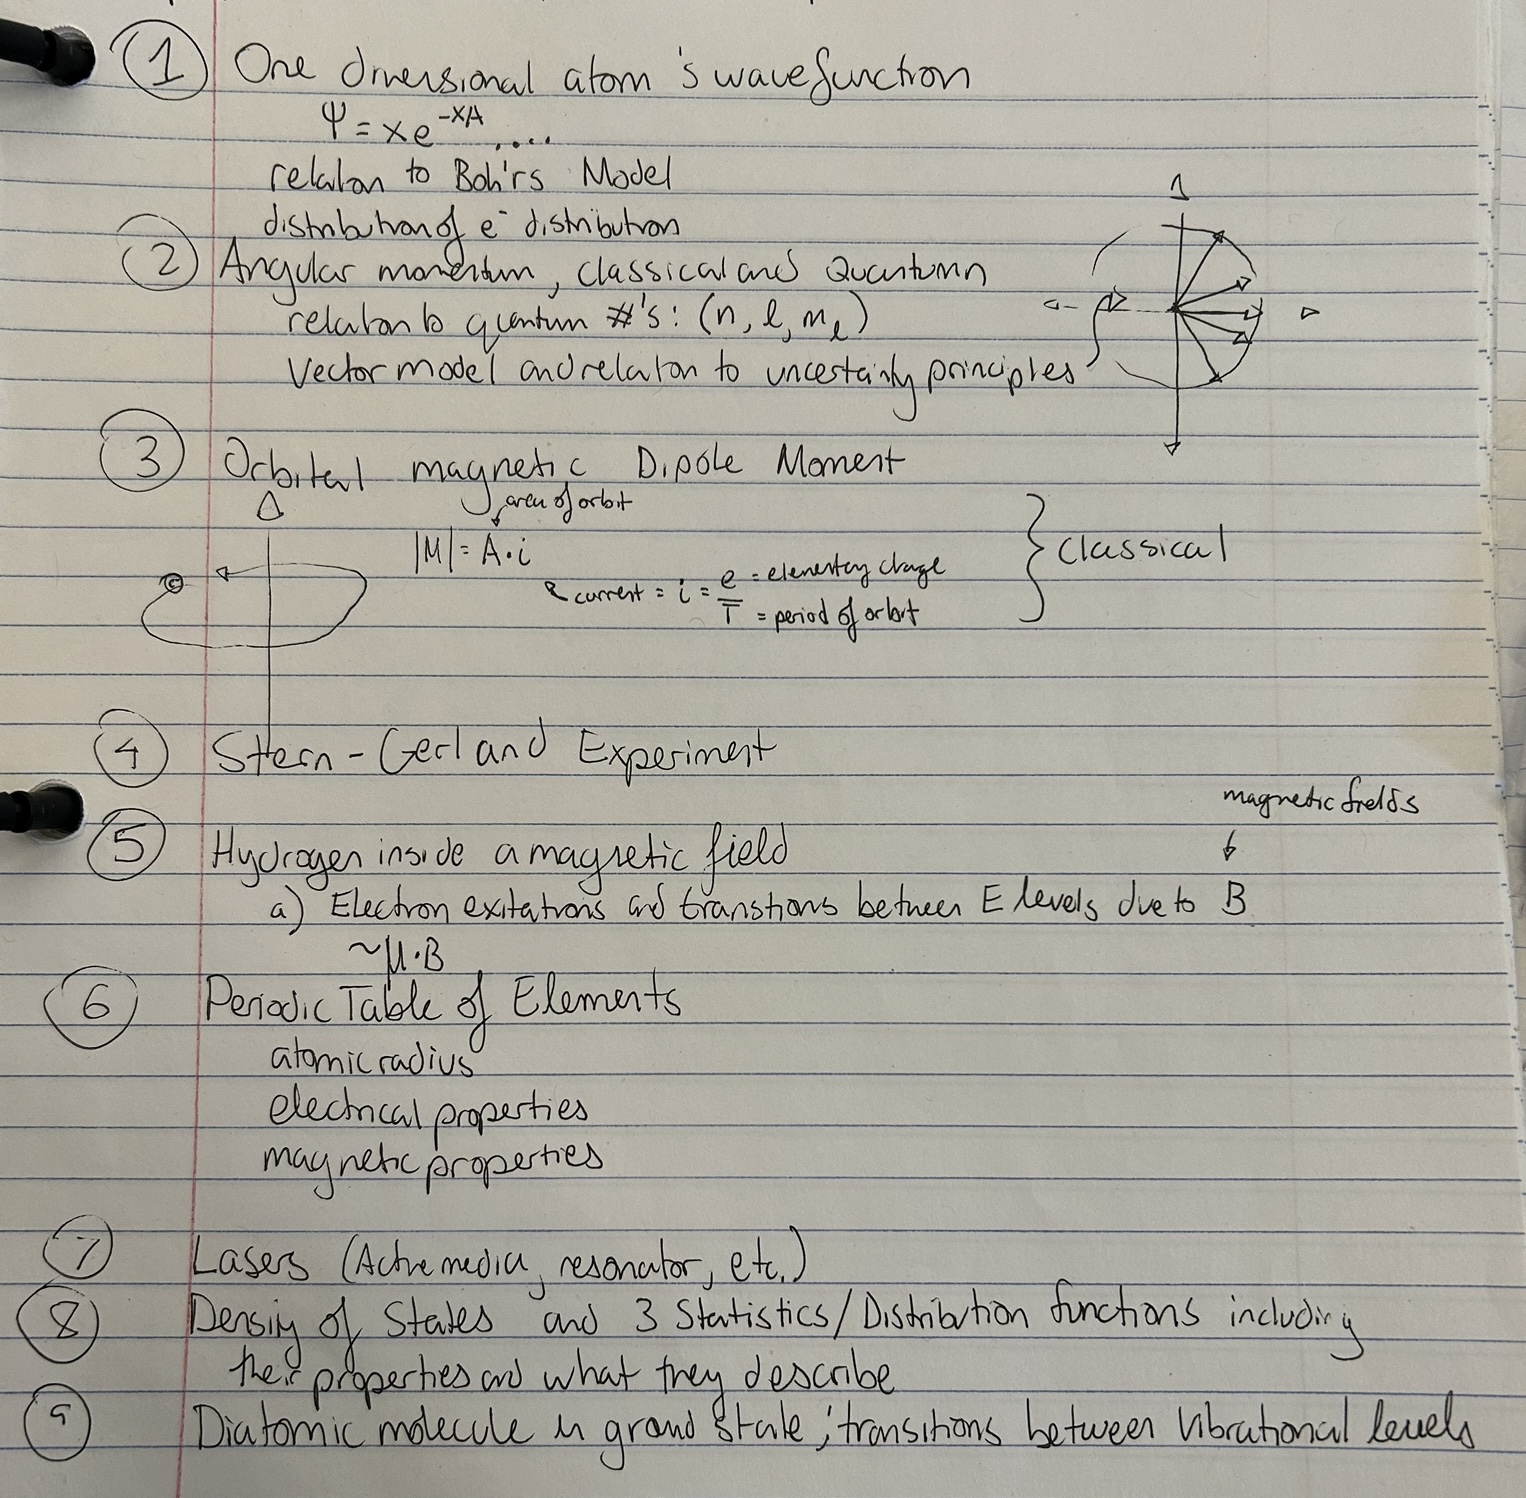 ① One dimensional atom's wavefunction
Ψ = xe^-x/A ....
relation to Boh'rs Model
distribution of e⁻ distribution
② Angular momentum, classical and Quantumn
relation to quentum #'s: (n, l, m_l)
Vector model and relation to uncertainty principles
③ Orbital magnetic Dipole Moment
area of orbit
|M| = A·i
current = i = e/T
e = elementary charge
T = period of orbit
Classical
④ Stern-Gerland Experiment
magnetic fields
⑤ Hydrogen inside a magnetic field
a) Electron exitations and transtions between E levels due to B
~μ·B
⑥ Periodic Table of Elements
atomic radius
electrical properties
magnetic properties
⑦ Lasers (Active media, resonator, etc.)
⑧ Density of States and 3 Statistics/Distribution functions including
their properties and what they describe
⑨ Diatomic molecule in grand state; transitions between vibrational levels